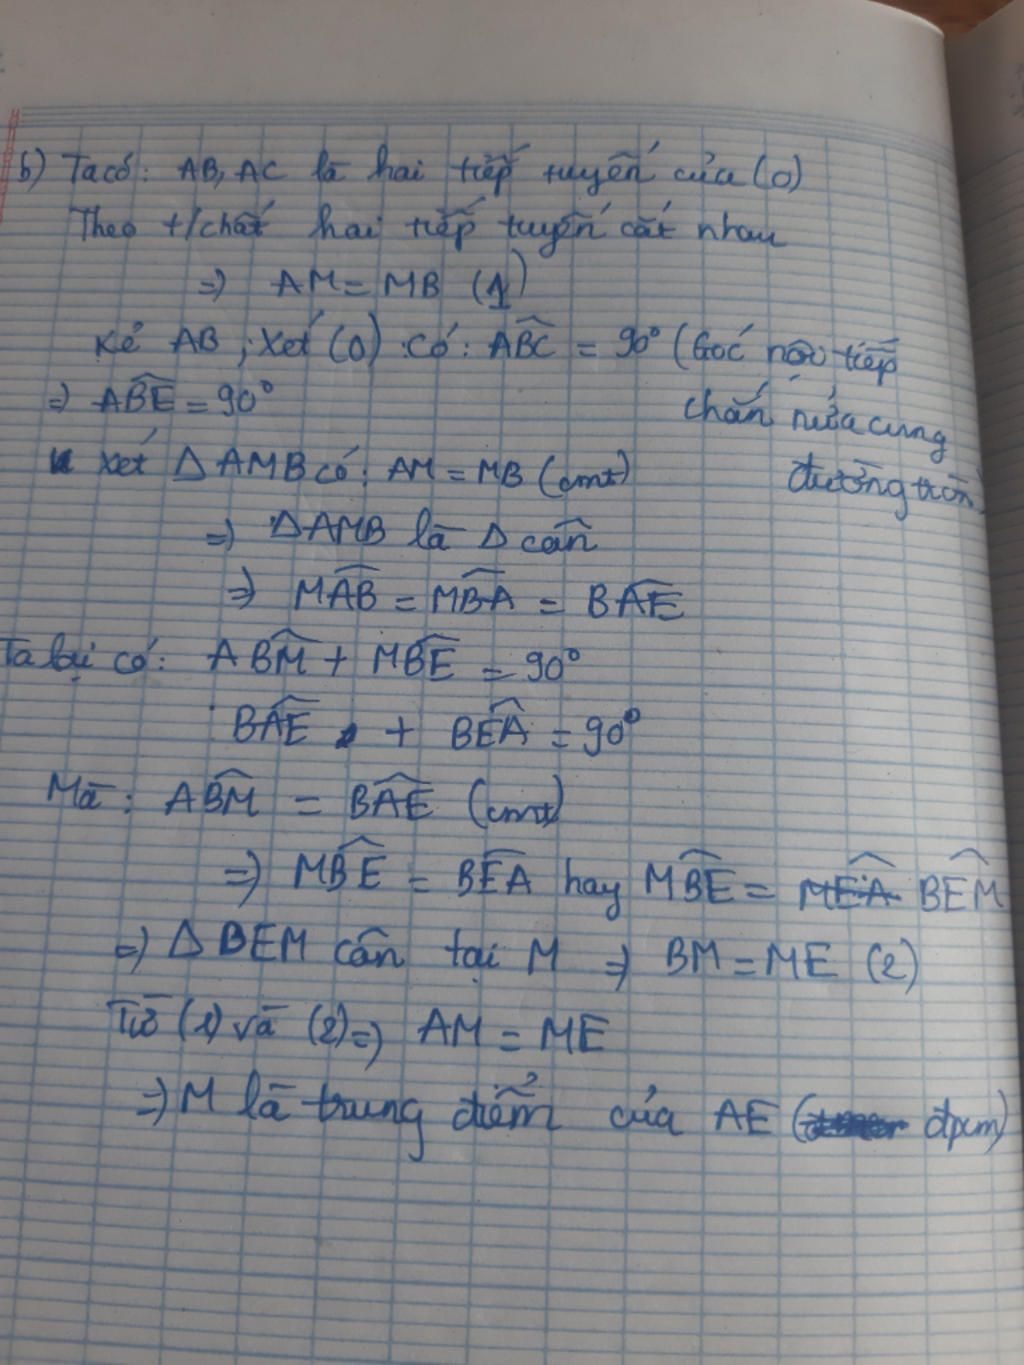 b) Ta có: AB, AC là hai tiếp tuyến của (O)
Theo t/chất hai tiếp tuyến cắt nhau
=> AM = MB (1)
Kẻ AB; Xét (O) có: ABC = 90° (Góc nội tiếp
chắn nửa cung
đường tròn)
=> ABE = 90°
Xét Δ AMB có: AM = MB (cmt)
=> ΔAMB là Δ cân
=> MAB = MBA = BAE
Ta lại có: ABM + MBE = 90°
BAE + BEA = 90°
Mà: ABM = BAE (cmt)
=> MBE = BEA hay MBE = MEA BEM
=> Δ BEM cân tại M => BM = ME (2)
Từ (1) và (2) => AM = ME
=> M là trung điểm của AE ( đpcm)